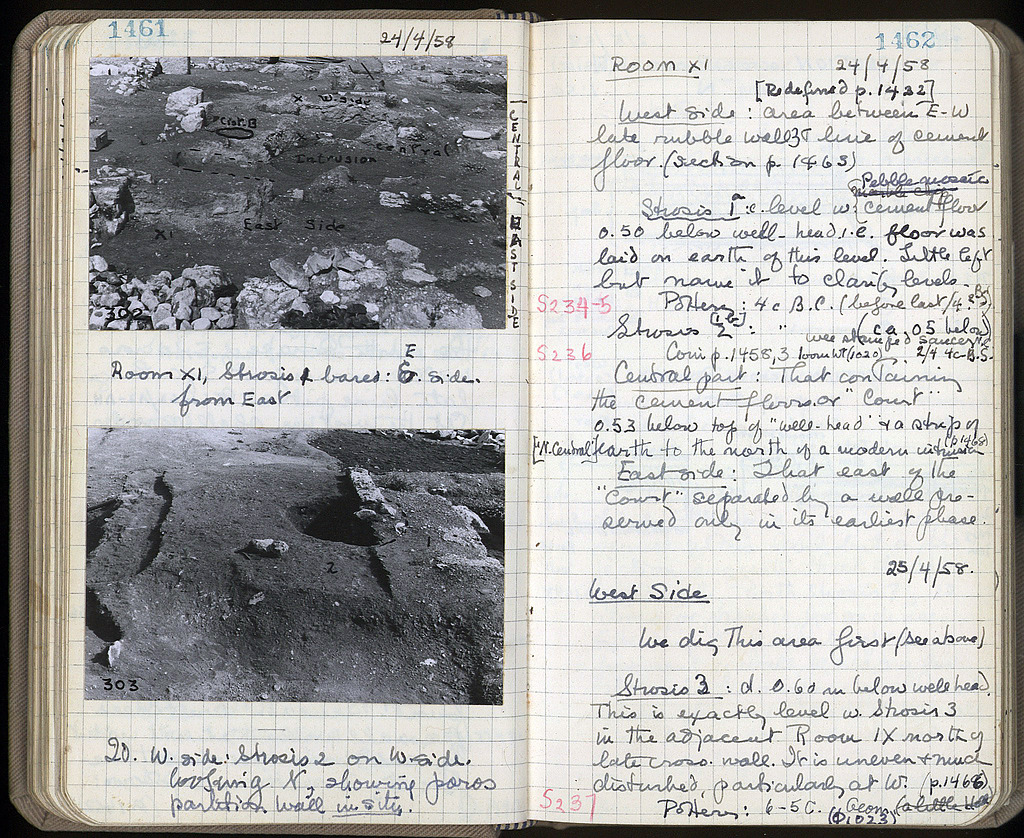 1461
24/4/58
X W. Side
Cist. B
Central
Intrusion
XI
East Side
302
CENTRAL
EAST SIDE
Room XI, Strosis 1 bared: E. side.
E
from East
2
1
303
20. W. side: Strosis 2 on W. side.
looking N, showing poros
partition wall in situ.
1462
Room XI 24/4/58
[Redefined p. 1432]
West side: area between E-W
late rubble wall & line of cement
floor. (section p. 1463)
Pebble mosaic
Strosis 1: c. level w. cement floor
0.50 below well-head i.e. floor was
laid on earth of this level. Little left
but name it to clarify levels.
S234-5 Pottery: 4 c B.C. (before last 1/4
Strosis 2: " (ca 05 below)
wee stamped saucer
S236 Coin p. 1458, 3 loomwt (1020) 2/4 4c-B.S.
Central part: That containing
the cement floors or "Court"
0.53 below top of "well-head" & a strip of
["N. Central"] earth to the north of a modern intrusion
(p 1468)
East side: That east of the
"Court" separated by a wall pre-
served only in its earliest phase.
25/4/58.
West Side
We dig this area first (see above)
Strosis 3: d. 0.60 m below well head.
This is exactly level w. Strosis 3
in the adjacent Room IX north of
late cross wall. It is uneven & much
disturbed, particularly at W. (p. 1466)
S237 Pottery: 6-5 C.
(Φ1023)